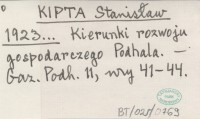 KIPTA Stanisław
1923... Kierunki rozwoju
gospodarczego Podhala. —
Gaz. Podh. 11, nry 41-44.
BT/021/0769